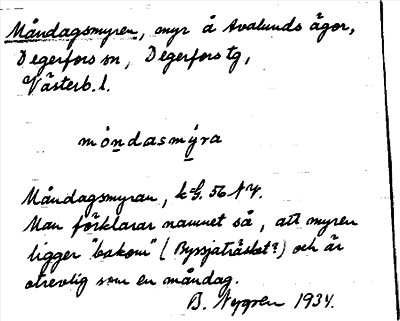 Måndagsmyren, myr å Avalunds ägor,
Degerfors sn, Degerfors tg,
Västerb. l.
móndasmýra
Måndagsmyran, k G. 56 NV.
Man förklarar namnet så, att myren
ligger "bakom" (Byssjaträsket?) och är
otrevlig som en måndag.
B. Nygren 1934.